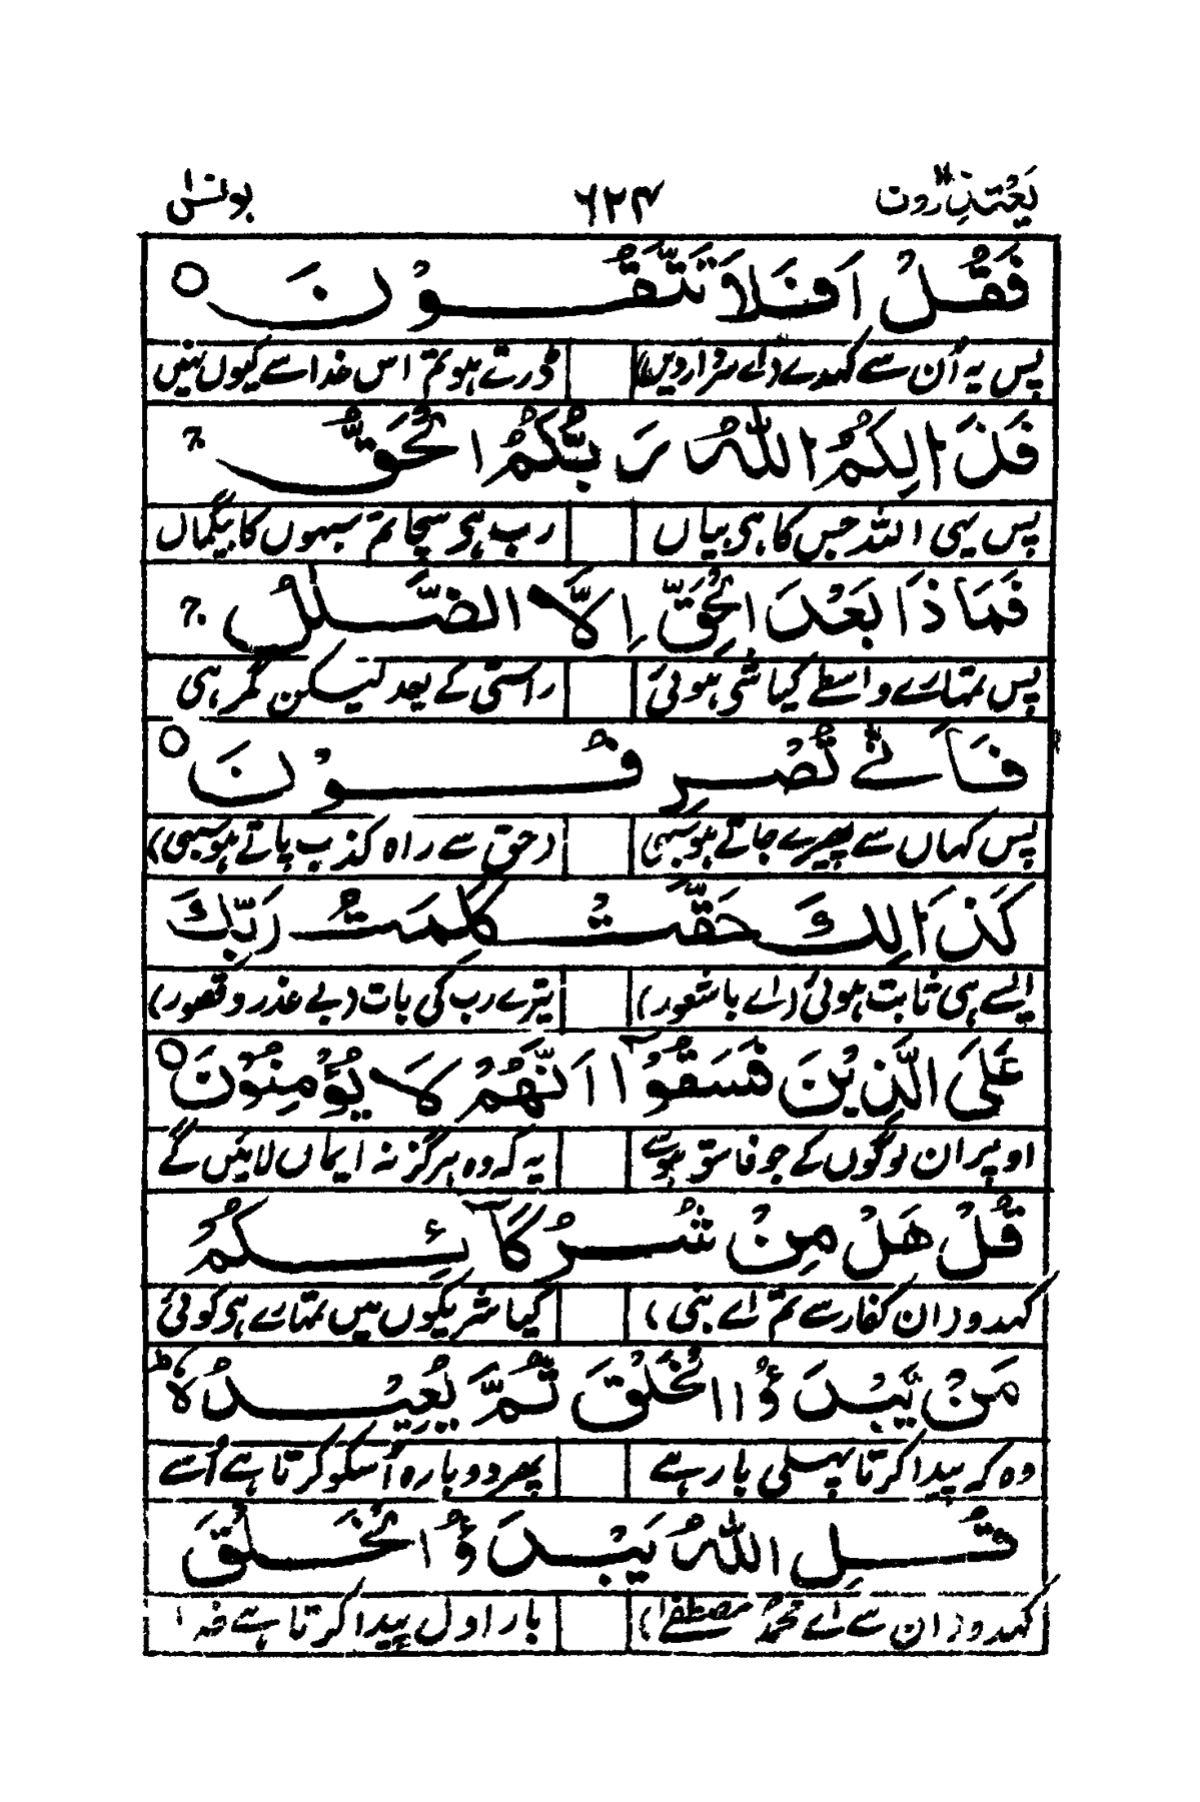 یَعْتَذِرُوْن ۶۲۴ یونس
فَقُلْ اَفَلَا تَتَّقُوْنَ ○
پس یہ اُن سے کہدے (اے سزاردیں) ڈرتے ہو تم اس خدا سے کیوں نہیں
فَذٰلِكُمُ اللّٰهُ رَبُّكُمُ الْحَقُّ ۚ
پس یہی اللہ جس کا ہی بیاں رب ہی سچا تم سبہوں کا بیگماں
فَمَاذَا بَعْدَ الْحَقِّ اِلَّا الضَّلٰلُ ۚ
پس تمہارے واسطے کیا شی ہوئی راستی کے بعد لیکن گمرہی
فَاَنّٰی تُصْرَفُوْنَ ○
پس کہاں سے پھیرے جاتے ہو سبھی (حق سے راہ کذب پاتے ہو سبھی)
كَذٰلِكَ حَقَّتْ كَلِمَتُ رَبِّكَ
ایسے ہی ثابت ہوئی (اے باشعور) تیرے رب کی بات (بے عذر و قصور)
عَلَی الَّذِیْنَ فَسَقُوْۤا اَنَّهُمْ لَا یُؤْمِنُوْنَ ○
اوپر ان لوگوں کے جو فاسق ہوئے یہ کہ وہ ہرگز نہ ایماں لائیں گے
قُلْ هَلْ مِنْ شُرَكَآئِكُمْ
کہدو (ان کفار سے تم اے نبی) کیا شریکوں میں تمہارے ہی کوئی
مَنْ یَّبْدَؤُا الْخَلْقَ ثُمَّ یُعِیْدُهٗ ؕ
وہ کہ پیدا کرتا پہلی بار ہے پھر دوبارہ اُسکو کرتا ہے اُسے
قُلِ اللّٰهُ یَبْدَؤُا الْخَلْقَ
کہدو (ان سے اے محمدؐ مصطفےٰ) بار اول پیدا کرتا ہے خدا